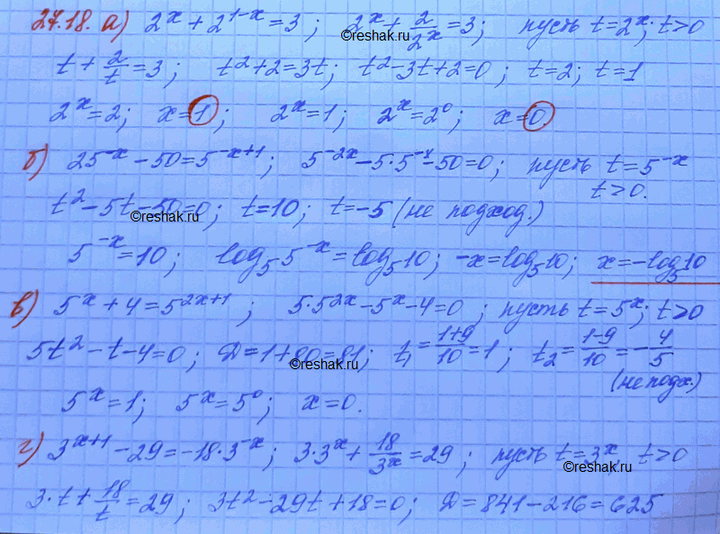 27.18. а) 2^x + 2^{1-x} = 3 ; 2^x + 2/2^x = 3; пусть t = 2^x; t>0
©reshak.ru
t + 2/t = 3 ; t² + 2 = 3t ; t² - 3t + 2 = 0 ; t = 2; t = 1
2^x = 2; x = 1 ; 2^x = 1 ; 2^x = 2^0 ; x = 0.
©reshak.ru
б) 25^{-x} - 50 = 5^{-x+1} ; 5^{-2x} - 5·5^{-x} - 50 = 0 ; пусть t = 5^{-x}
t>0.
t² - 5t - 50 = 0; t = 10; t = -5 (не подход.)
©reshak.ru
5^{-x} = 10; log₅ 5^{-x} = log₅ 10; -x = log₅ 10; x = -log₅ 10
©reshak.ru
в) 5^x + 4 = 5^{2x+1} ; 5·5^{2x} - 5^x - 4 = 0 ; пусть t = 5^x; t>0
5t² - t - 4 = 0 ; D = 1 + 80 = 81 ; t₁ = (1+9)/10 = 1 ; t₂ = (1-9)/10 = -4/5
©reshak.ru
(не подх.)
5^x = 1; 5^x = 5^0; x = 0.
г) 3^{x+1} - 29 = -18·3^{-x} ; 3·3^x + 18/3^x = 29 ; пусть t = 3^x, t>0
©reshak.ru
3·t + 18/t = 29 ; 3t² - 29t + 18 = 0; D = 841 - 216 = 625